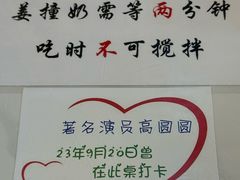 姜撞奶需等两分钟
吃时不可搅拌
著名演员高圆圆
23年9月20日曾
在此桌打卡